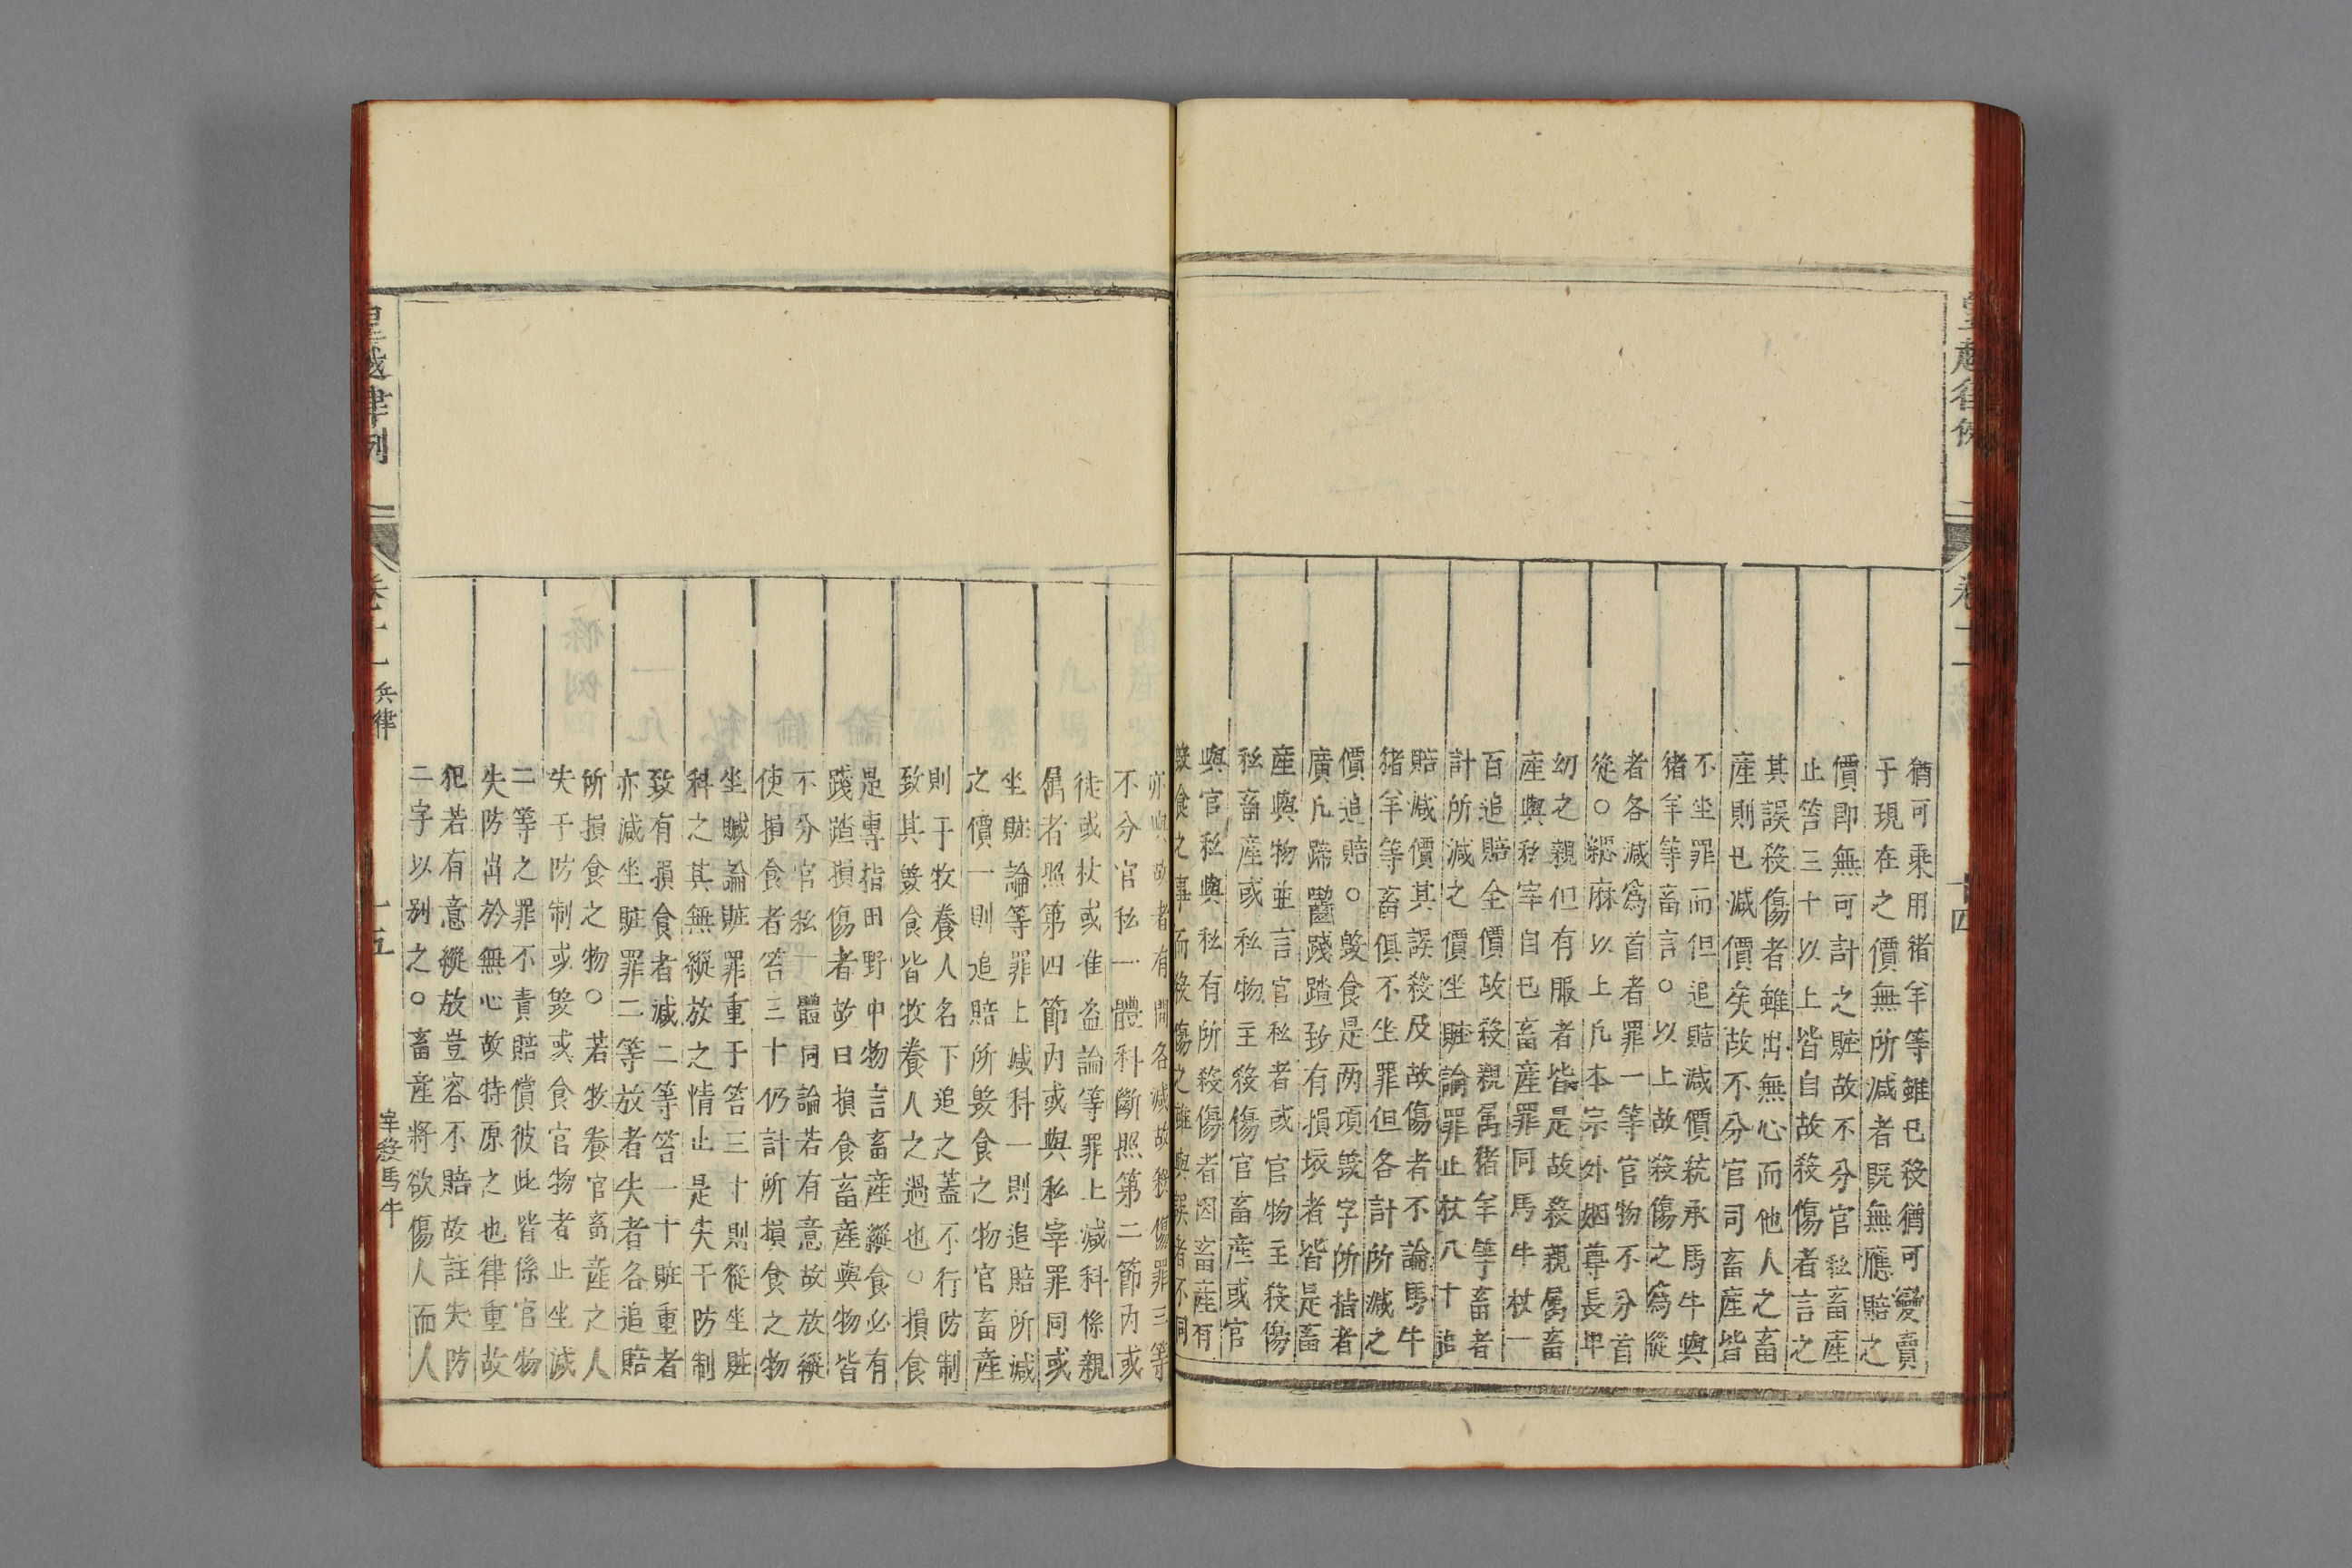 皇越律例
卷十一
十四
猶可乘用猪羊等雖已殺猶可變賣
于現在之價無所减者既無應賠之
價即無可計之贓故不分官私畜産
止笞三十以上皆自故殺傷者言之
其誤殺傷者雖出無心而他人之畜
産則也减價矣故不分官司畜産皆
不坐罪而但追賠减價統承馬牛與
猪羊等畜言○以上故殺傷之為縱
者各减為首者罪一等官物不分首
從○緦麻以上凡本宗外姻尊長卑
幼之親但有服者皆是故殺親属畜
産與私宰自己畜産罪同馬牛杖一
百追賠全價故殺親属猪羊等畜者
計所减之價坐贓論罪止杖八十追
賠减價其誤殺及故傷者不論馬牛
猪羊等畜俱不坐罪但各計所减之
價追賠○毀食是两項毀字所指者
廣凡蹄嚙踐踏致有損壞者皆是畜
産與物並言官私者或官物主殺傷
私畜産或私物主殺傷官畜産或官
與官私與私有所殺傷者因畜産有
毀食之事而殺傷之雖與誤者不同
亦與故者有間各减故殺傷罪三等
不分官私一體科斷照第二節内或
徒或杖或准盗論等罪上减科係親
属者照第四節内或與私宰罪同或
坐贓論等罪上减科一則追賠所减
之價一則追賠所毀食之物官畜産
則于牧養人名下追之蓋不行防制
致其毀食皆牧養人之過也○損食
是專指田野中物言畜産縱食必有
踐踏損傷者故曰損食畜産與物皆
不分官私一體同論若有意故放縱
使損食者笞三十仍計所損食之物
坐贓論贓罪重于笞三十則從坐贓
科之其無縱放之情止是失于防制
致有損食者减二等笞一十贓重者
亦减坐贓罪二等放者失者各追賠
所損食之物○若牧養官畜産之人
失于防制或毀或食官物者止坐减
二等之罪不責賠償彼此皆係官物
失防出於無心故特原之也律重故
犯若有意縱放豈容不賠故註失防
二字以别之○畜産將欲傷人而人
皇越律例
卷十一
兵律
宰殺馬牛
十五